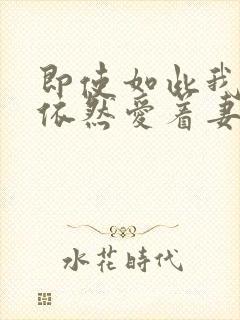 即使如此我
依然爱着妻
水花時代